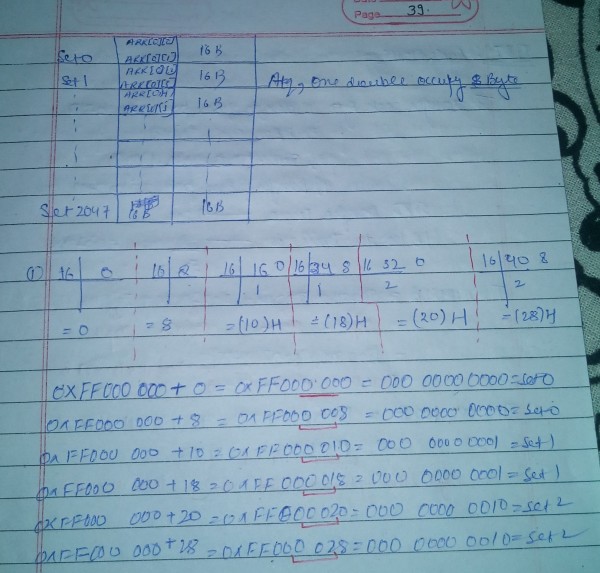 Page 39.
Set 0 ARR[0][0] 16B
ARR[0][1]
Set 1 16B
Atq, one double occupy 8 Byte
16B
Set 2047 16B 16B
(1) 16 0 16 8 16 16 0 16 24 8 16 32 0 16 40 8
1 1 2 2
= 0 = 8 = (10)H = (18)H = (20)H = (28)H
0XFF000 000 + 0 = 0XFF000 000 = 000 0000 0000 = set 0
0XFF000 000 + 8 = 0XFF000 008 = 000 0000 0000 = set 0
0XFF000 000 + 10 = 0XFF000010 = 000 0000 0001 = set 1
0XFF000 000 + 18 = 0XFF000018 = 000 0000 0001 = set 1
0XFF000 000 + 20 = 0XFF000020 = 000 0000 0010 = set 2
0XFF000 000 + 28 = 0XFF000 028 = 000 0000 0010 = set 2